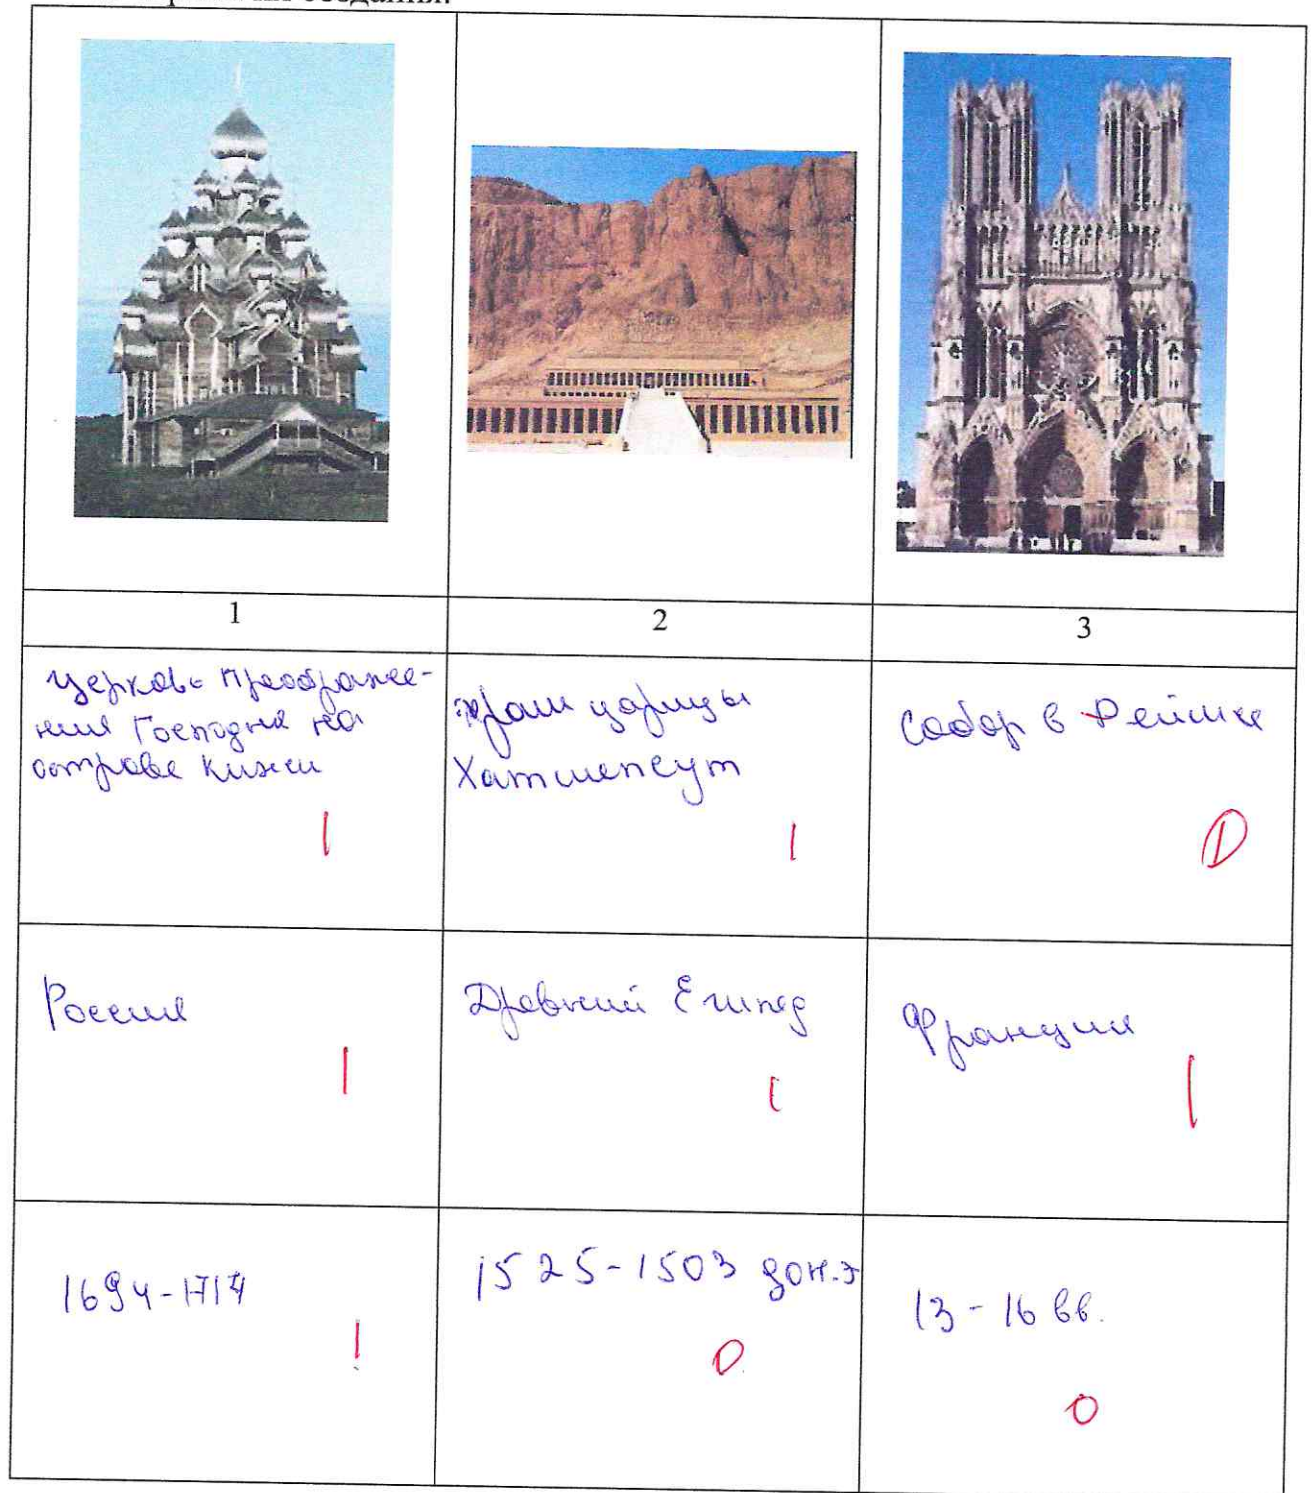 создания.
1
2
3
Церковь Преображе-
ния Господня на
острове Кижи
1
храм царицы
Хатшепсут
1
Собор в Реймсе
1
Россия
1
Древний Египед
1
Франция
1
1694-1714
1
1525-1503 до н.э
0
13-16 вв.
0